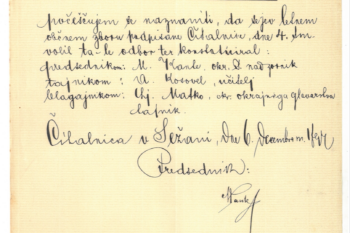 počeščujem se naznaniti, da se je v letnem
občnem zboru podpisane Čitalnice, dne 4. t.m.
volil ta-le odbor ter konstituiral:
predsednikom: M. Kante, okr. š. nadzornik
tajnikom: A. Kosovel, učitelj
blagajnikom: Mj. Matko, okr. okrajnega glavarstva
Čitalnica v Sežani, dne 6. decembra
Predsednik:
Kante